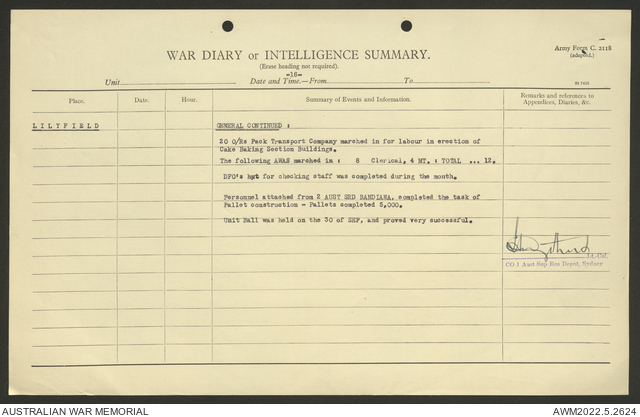 Army Form C. 2118
(adapted.)
WAR DIARY or INTELLIGENCE SUMMARY.
(Erase heading not required).
-16-
Unit Date and Time.—From To
Place. Date. Hour. Summary of Events and Information. Remarks and references to
Appendices, Diaries, &c.
LILYFIELD GENERAL CONTINUED :
20 O/Rs Pack Transport Company marched in for labour in erection of
Cake Baking Section Buildings.
The following AWAS marched in : 8 Clerical, 4 MT. : TOTAL ... 12.
DFO's hut for checking staff was completed during the month.
Personnel attached from 2 AUST SRD BANDIANA, completed the task of
Pallet construction - Pallets completed 5,000.
Unit Ball was held on the 30 of SEP, and proved very successful.
Lt.-Col.
CO 1 Aust Sup Res Depot, Sydney
AUSTRALIAN WAR MEMORIAL AWM2022.5.2624